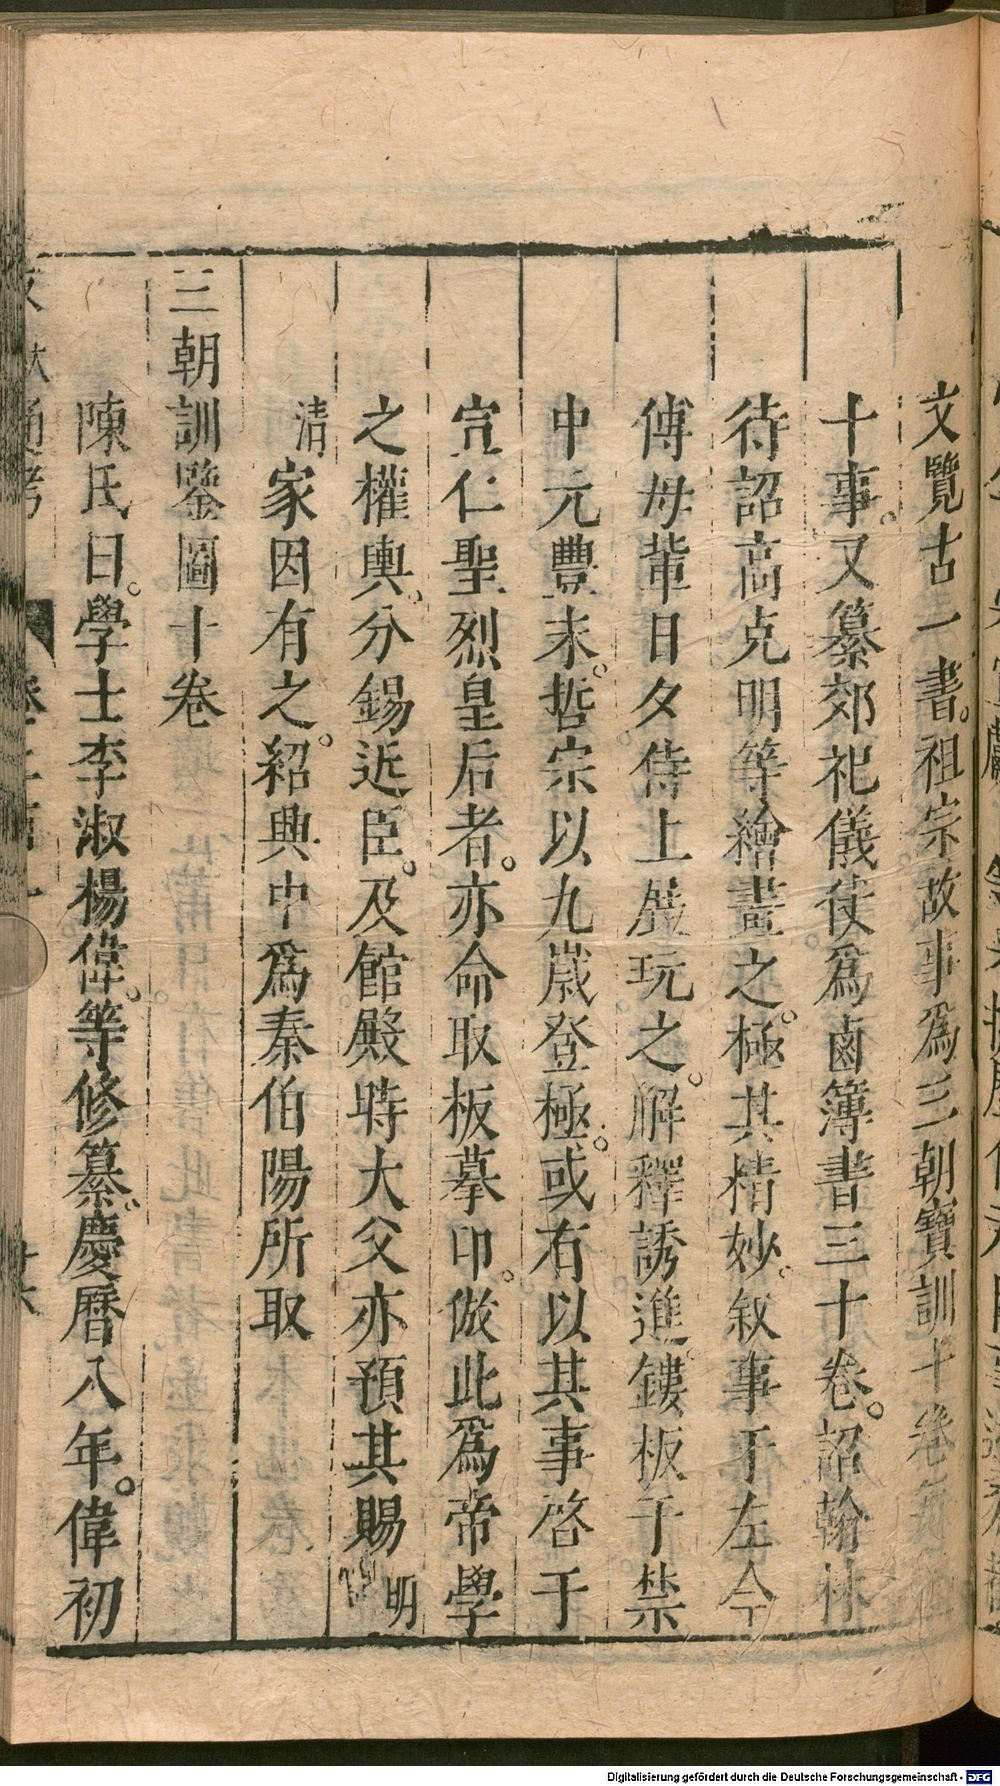 文覽古一書。祖宗故事爲三朝寶訓十卷每
十事。又纂郊祀儀仗爲鹵簿書三十卷。詔翰林
待詔高克明等繪畫之。極其精妙。叙事于左今
傅母軰日夕侍上展玩之。解釋誘進鏤板于禁
中元豐末。哲宗以九歲登極。或有以其事啓于
宣仁聖烈皇后者。亦命取板摹印。倣此爲帝學
之權輿。分錫近臣。及館殿時大父亦預其賜明
清家因有之。紹興中爲秦伯陽所取
三朝訓鑒圖十卷
陳氏曰。學士李淑楊偉。等修纂。慶曆八年。偉初
通考
卷二百
Digitalisierung gefördert durch die Deutsche Forschungsgemeinschaft - DFG